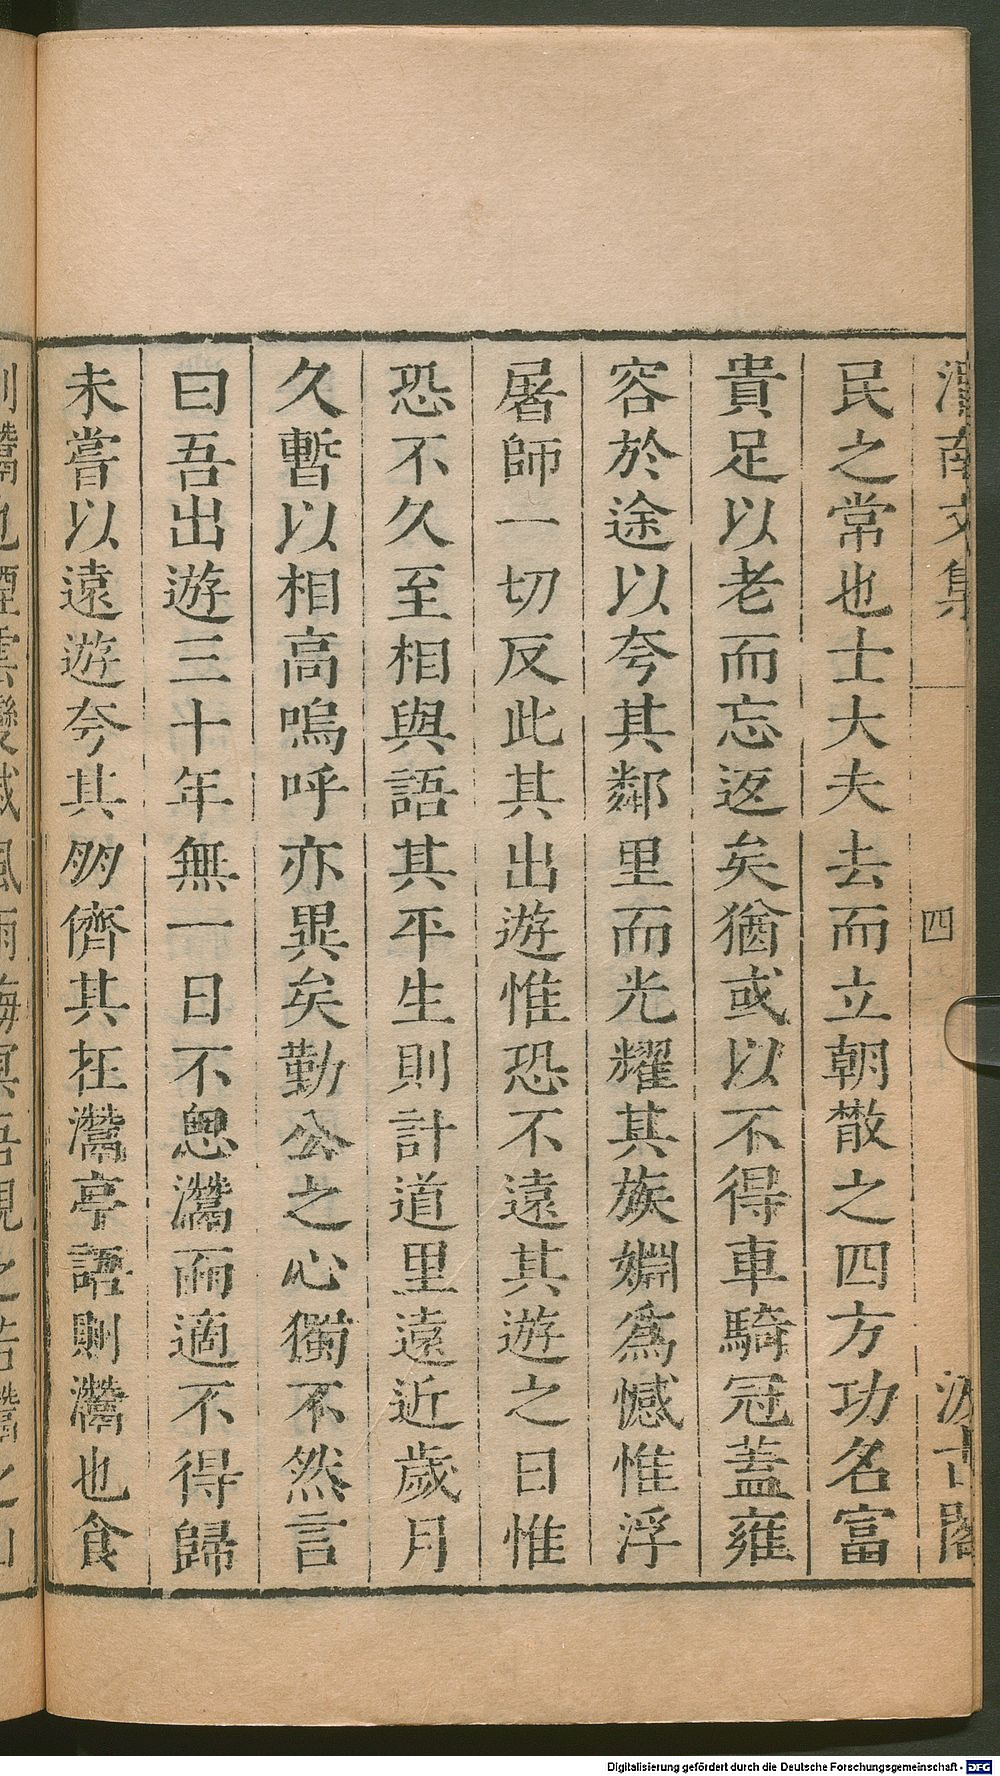 渭南文集
四
汲古閣
民之常也士大夫去而立朝散之四方功名富
貴足以老而忘返矣猶或以不得車騎冠蓋雍
容於途以夸其鄰里而光耀其族婣爲憾惟浮
屠師一切反此其出遊惟恐不遠其遊之日惟
恐不久至相與語其平生則計道里遠近歲月
久暫以相高嗚呼亦異矣勤公之心獨不然言
曰吾出遊三十年無一日不思灊而適不得歸
未嘗以遠遊夸其朋儕其在灊亭語則灊也食
則灊也煙雲變滅風雨晦冥吾視之若灊之山
Digitalisierung gefördert durch die Deutsche Forschungsgemeinschaft - DFG